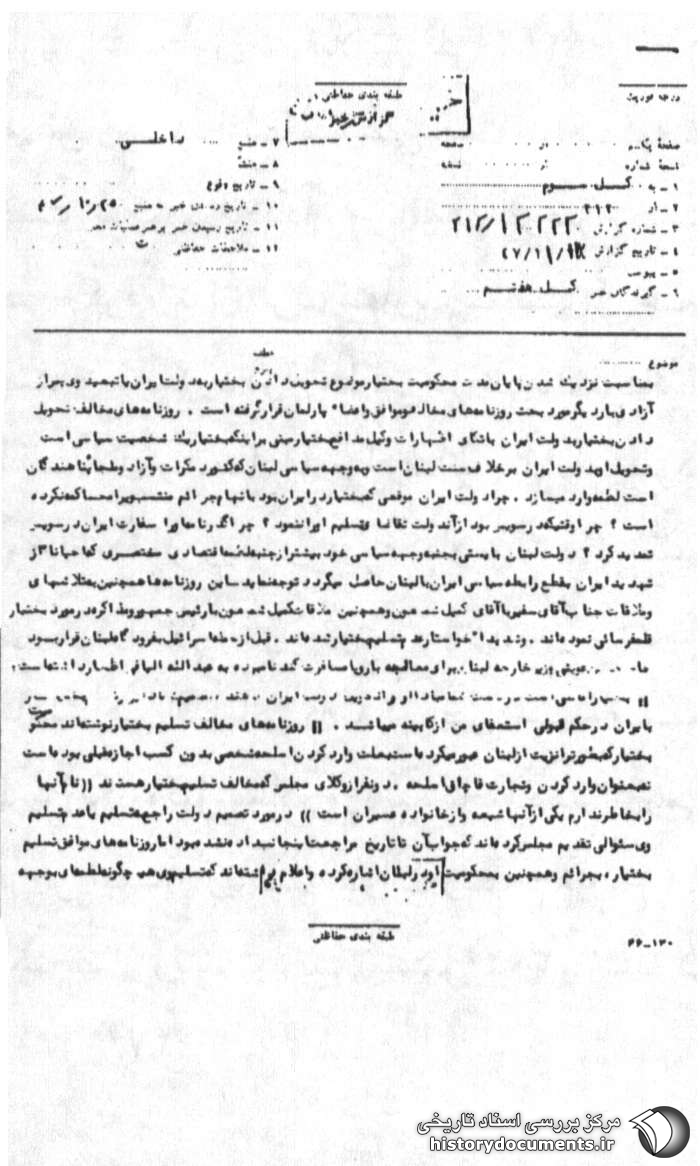 درجه فوریت
طبقه بندی حفاظتی
خیلی
صفحه یکم از صفحه
نسخه شماره از نسخه
۱ – به کل سوم
۲ – از ۳۱۲
۳ – شماره گزارش ۳۱۲/۱۲۰۲۲۲
۴ – تاریخ گزارش
۵ – پیوست
۶ – گیرندگان خبر کل هفتم
۷ – منبع داخلی
۸ – منشاء
۹ – تاریخ وقوع
۱۰ – تاریخ رسیدن خبر به منبع
۱۱ – تاریخ رسیدن خبر برهبر عملیات
۱۲ – ملاحظات حفاظتی
موضوع
بمناسبت نزدیک شدن پایان مدت محکومیت بختیار موضوع تحویل دادن بختیار بدولت ایران یا تبعید وی پس از
آزادی بار دیگر مورد بحث روزنامه های مخالف و موافق و اعضاء پارلمان قرار گرفته است . روزنامه های مخالف تحویل
دادن بختیار بدولت ایران باتکای اظهارات وکیل مدافع بختیار مبنی بر اینکه بختیار یک شخصیت سیاسی است
و تحویل او بدولت ایران برخلاف سنت لبنان است و به وجهه سیاسی لبنان که کشور دمکرات و آزاد و ملجا پناهندگان
است لطمه وارد میسازد . چرا دولت ایران موقعی که بختیار در ایران بود باتهام جرائم منتسبه ویرا محاکمه نکرده
است ؟ چرا وقتیکه در سویس بود از آن دولت تقاضای تسلیم او را ننمود ؟ چرا گذرنامه او را سفارت ایران در سویس
تمدید کرد ؟ دولت لبنان بایستی بجنبه وجهه سیاسی خود بیشتر از جنبه لطمه اقتصادی مختصری که احیانا از
تهدید ایران بقطع رابطه سیاسی ایران با لبنان حاصل میگردد توجه نماید سایر روزنامه ها همچنین بتلاشهای
و ملاقات جناب آقای سفیر با آقای کمیل شمعون و همچنین ملاقات کمیل شمعون با رئیس جمهور وطه اکره در مورد بختیار
قلمفرسائی نموده اند . و شدیدا خواستار عدم تسلیم بختیار شده اند . قبل از حمله اسرائیل بفرودگاه لبنان قرار بود
وزیر خارجه لبنان برای معالجه بپاریس مسافرت کند نامبرده به عبدالله الیافی اظهار داشته است :
بایران در حکم قبولی استعفای من از کابینه میباشد . (( روزنامه های مخالف تسلیم بختیار نوشته اند
بختیار که بطور ترانزیت از لبنان عبور میکرد بایستی بعلت وارد کردن اسلحه شخصی بدون کسب اجازه قبلی بوده است
نه بعنوان وارد کردن و تجارت قاچاق اسلحه . دو نفر از وکلای مجلس که مخالف تسلیم بختیار هستند (( نام آنها
را بخاطر ندارم یکی از آنها شیعه و از خانواده عسیران است )) در مورد تصمیم دولت راجع بتسلیم یا عدم تسلیم
وی سئوالی تقدیم مجلس کرده اند که جواب آن تا تاریخ مراجعت اینجانب داده نشده بود اما روزنامه های موافق تسلیم
بختیار ، بجرائم و همچنین بمحکومیت او در لبنان اشاره کرده و اعلام داشته اند که تسلیم وی هیچ گونه لطمه ای بوجهه
طبقه بندی حفاظتی
۶۶–۱۳۰
مرکز بررسی اسناد تاریخی
historydocuments.ir